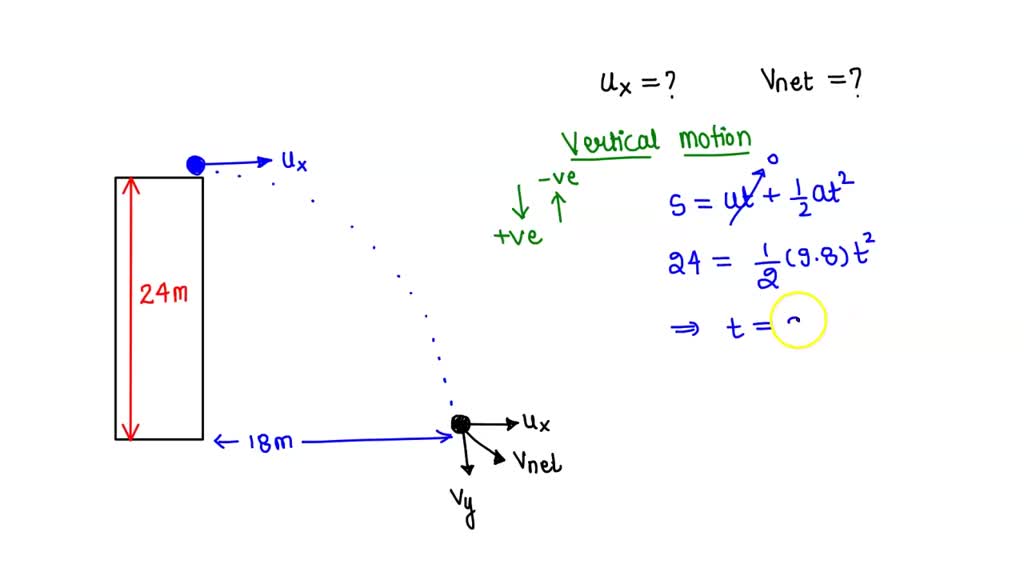 uₓ = ? Vnet = ?
Vertical motion
-ve
+ve
0
S = ut + ½at²
24 = ½(9.8)t²
⇒ t =
uₓ
24m
← 18m →
uₓ
Vnet
Vy